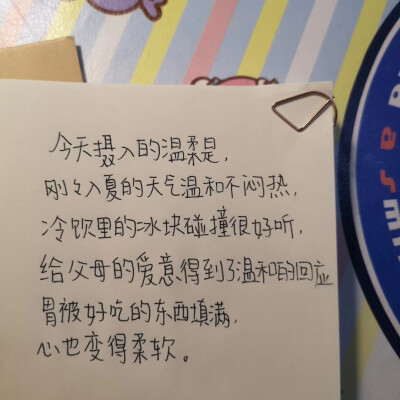 今天摄入的温柔是,
刚刚入夏的天气温和不闷热,
冷饮里的冰块碰撞很好听,
给父母的爱意得到了温和的回应
胃被好吃的东西填满,
心也变得柔软。